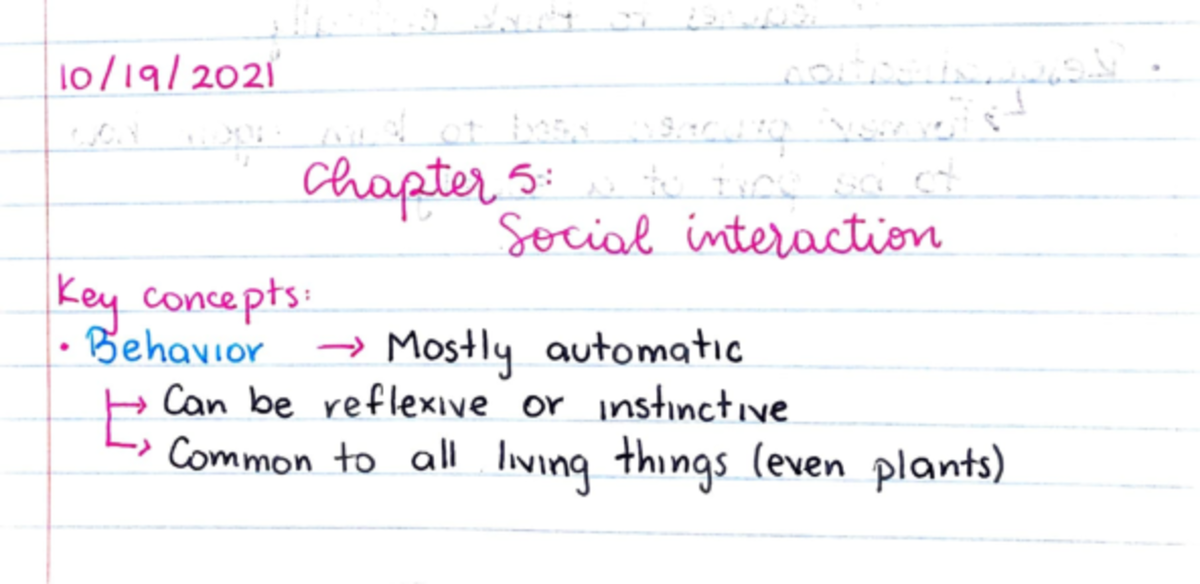 10/19/2021
Chapter 5:
Social interaction
Key concepts:
• Behavior → Mostly automatic
↳ Can be reflexive or instinctive
↳ Common to all living things (even plants)